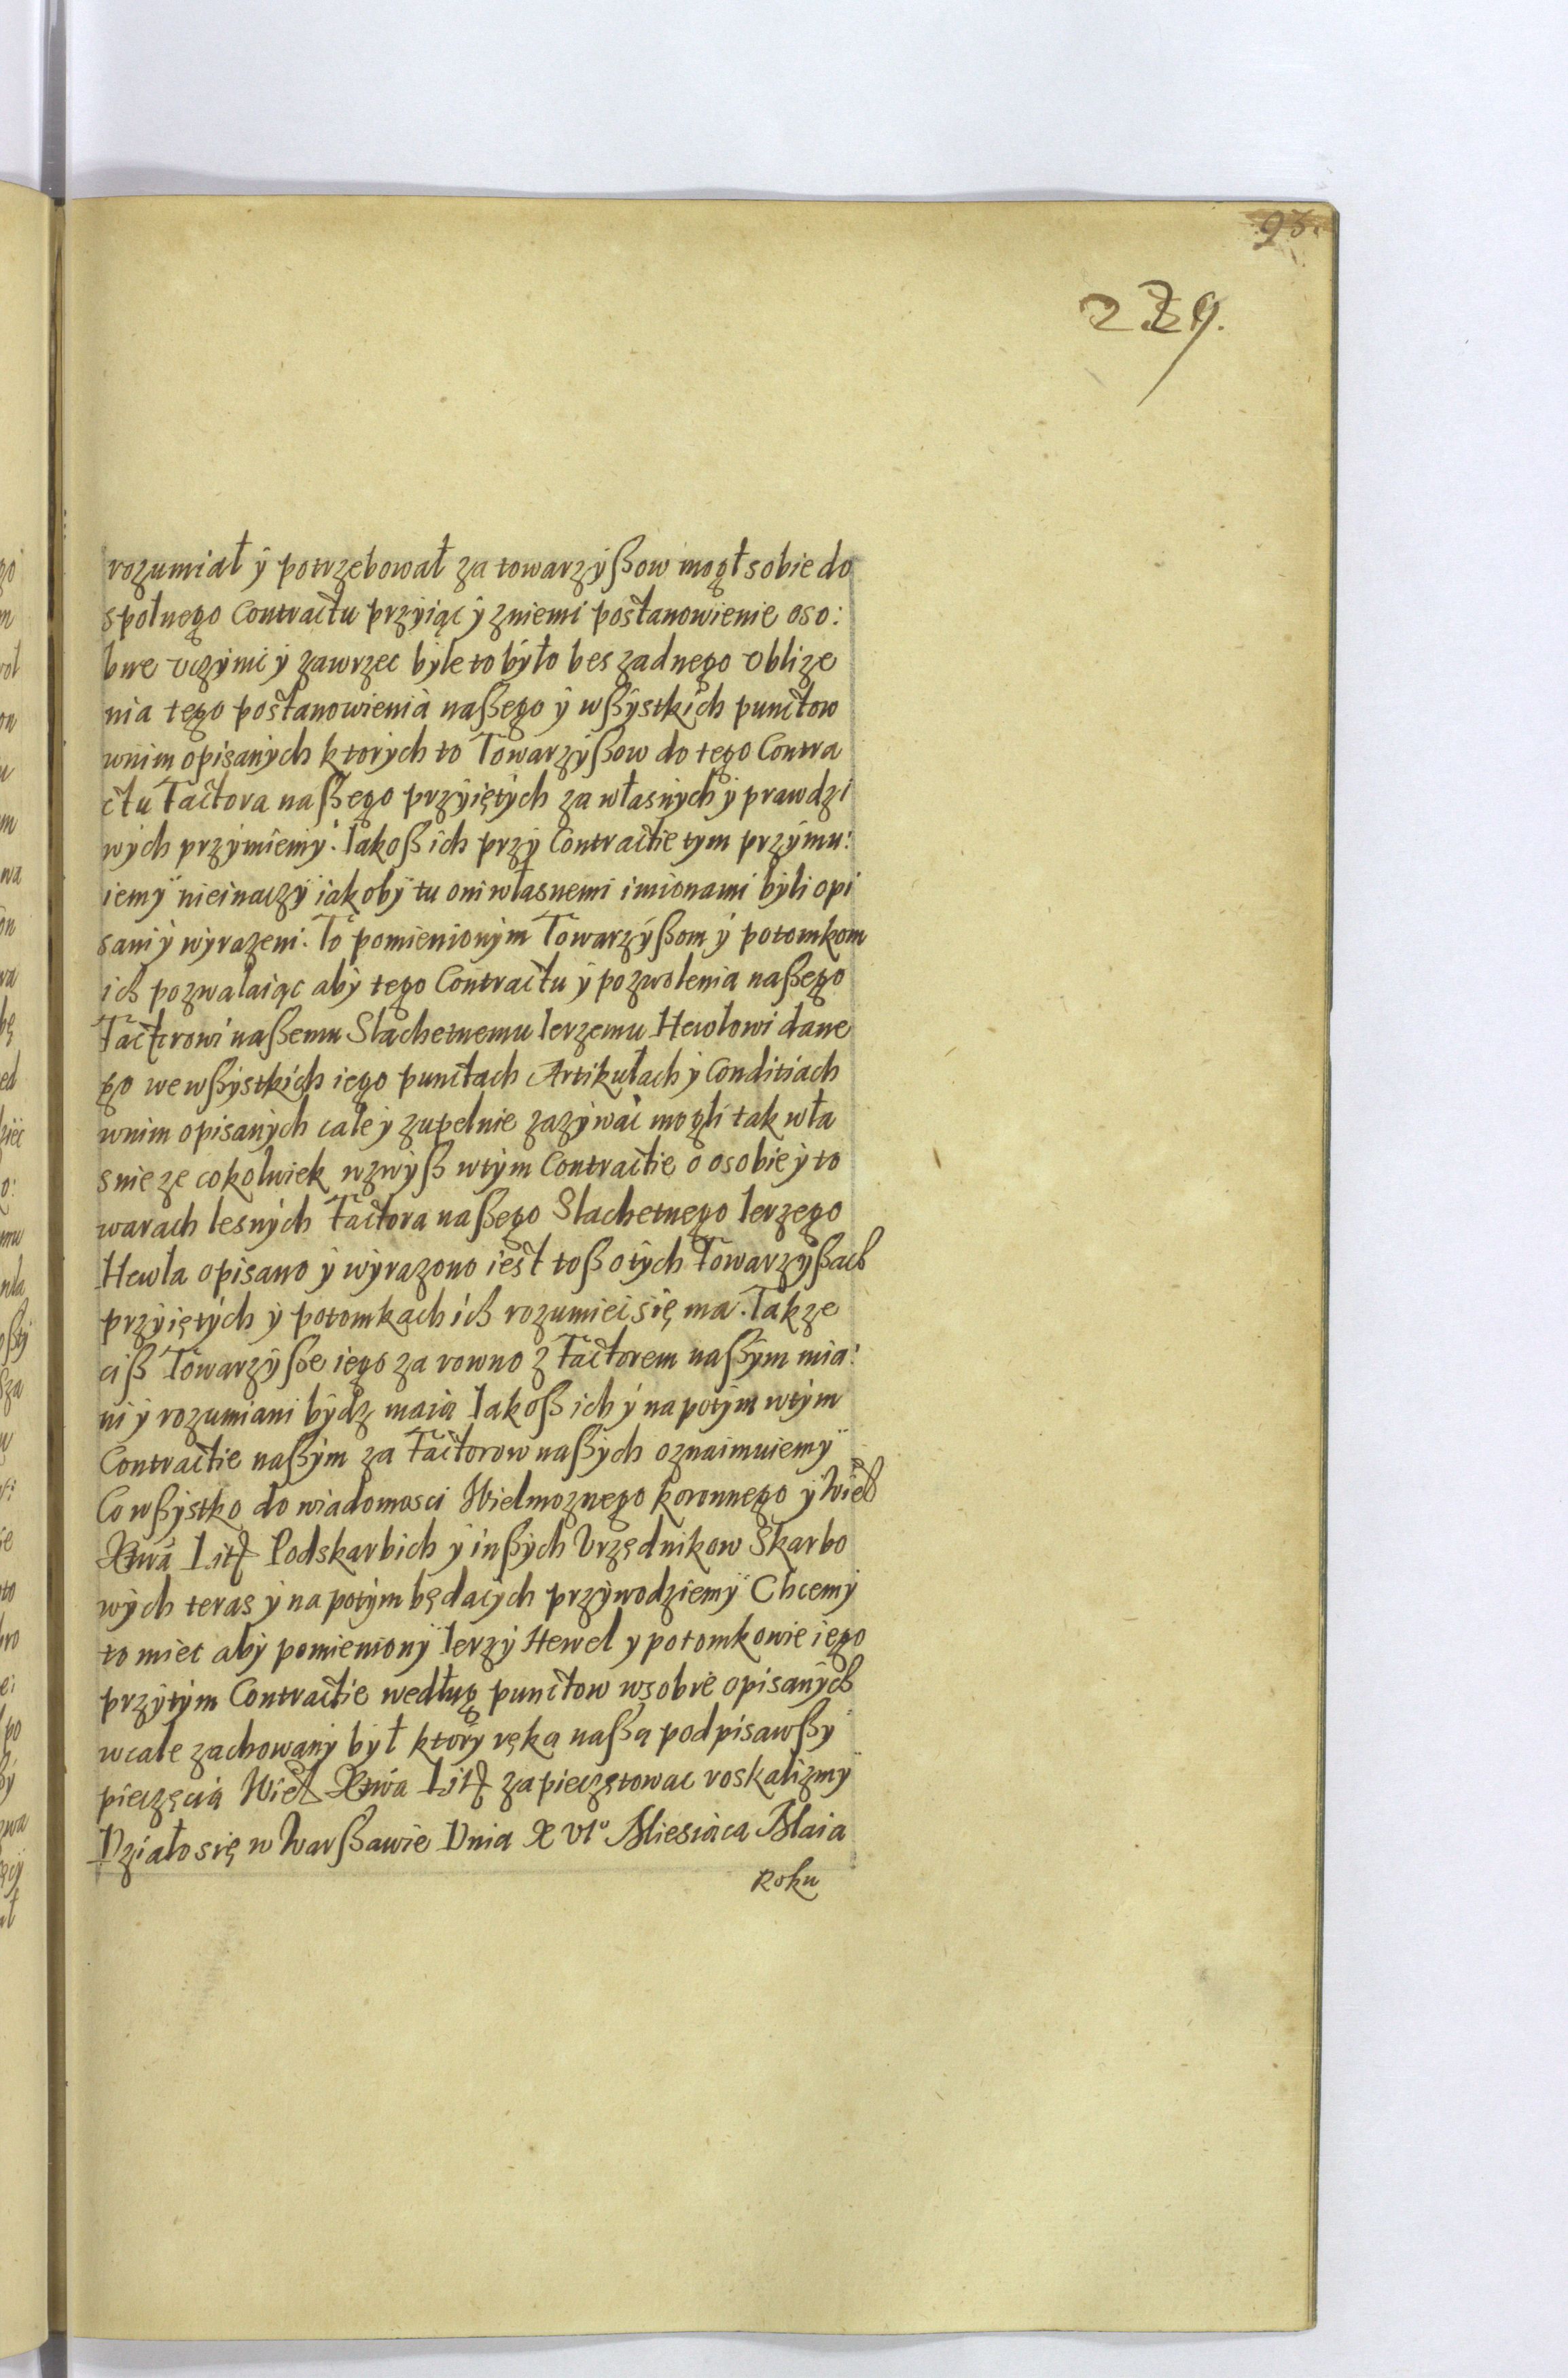 93.
229.
rozumiał ÿ potrzebował za towarzÿßow mogł sobie do
społnego Contractu przÿiąc ÿ zniemi postanowienie oso:
bne vczÿnic ÿ zawrzec bÿle to bÿło bes zadnego vblize
nia tego postanowienia naßego ÿ wßÿstkich punctow
wnim opisanÿch ktorÿch to Towarzÿßow do tego Contra
ctu Factora naßego przÿiętÿch za własnÿch ÿ prawdzi
wÿch przÿmiemÿ. Iakoß ich przÿ Contractie tym przÿmu:
iemÿ nieinaczÿ iakobÿ tu oni własnemi imionami bÿli opi
sani ÿ wÿrazeni. To pomienionÿm Towarzÿßom ÿ potomkom
ich pozwalaiąc abÿ tego Contractu ÿ pozwolenia naßego
Factorowi naßemu Slachetnemu Ierzemu Hewlowi dane
go we wßÿstkich iego punctach Artikułach ÿ Conditiach
wnim opisanÿch cale ÿ zupelnie zazÿwac mogli tak wła
snie ze cokolwiek wzwÿß wtÿm Contractie o osobie ÿ to
warach lesnÿch Factora naßego Slachetnego Ierzego
Hewla opisano ÿ wÿrazono iest toß otÿch Towarzÿßach
przÿiętÿch ÿ potomkach ich rozumiec się ma. Takze
ciß Towarzÿße iego za rowno z Factorem naßÿm mia:
ni ÿ rozumiani bÿdz maią Iakoß ich ÿ na potÿm wtÿm
Contractie naßÿm za Factorow naßÿch oznaimuiemÿ
Co wßÿstko do wiadomosci Wielmoznego koronnego ÿ Wiel
Xtwa Litt Podskarbich ÿ inßÿch Vrzędnikow Skarbo
wÿch teras ÿ na potÿm będacÿch przÿwodziemÿ Chcemÿ
to miec abÿ pomienionÿ Ierzÿ Hewel ÿ potomkowie iego
przÿtÿm Contractie według punctow wsobie opisanÿch
wcale zachowanÿ bÿł ktorÿ ręką naßą podpisawßÿ
pieczęcią Wiel Xtwa Litt zapieczętowac roskalizmÿ
Działo się w Warßawie Dnia XVIº Miesiąca Maia
Roku